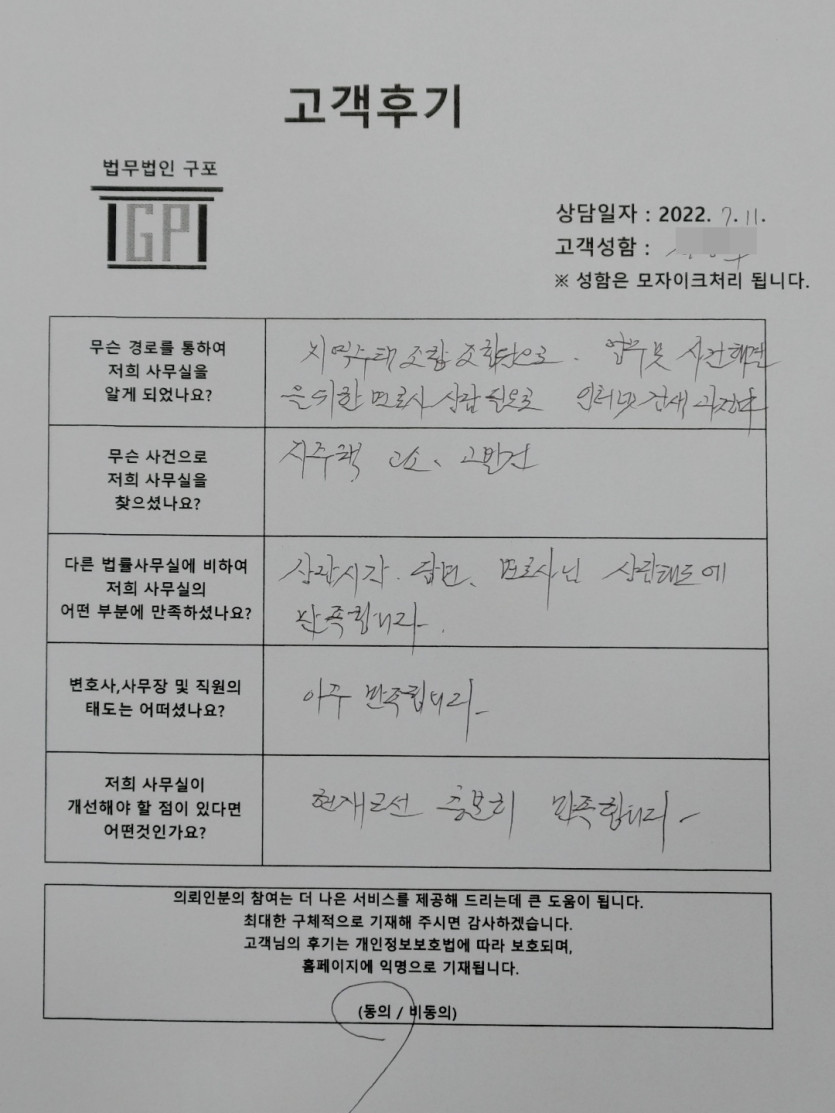 고객후기
법무법인 구포
GP
상담일자 : 2022. 7. 11.
고객성함 :
※ 성함은 모자이크처리 됩니다.
무슨 경로를 통하여
저희 사무실을
알게 되었나요?
지역주택조합 조합원으로. 업무及 사건해결
을 위한 변호사 상담 필요로 인터넷 검색
무슨 사건으로
저희 사무실을
찾으셨나요?
지주택 고소、고발건
다른 법률사무실에 비하여
저희 사무실의
어떤 부분에 만족하셨나요?
상담시각. 답변、변호사님 상담태도에
만족합니다.
변호사,사무장 및 직원의
태도는 어떠셨나요?
아주 만족합니다
저희 사무실이
개선해야 할 점이 있다면
어떤것인가요?
현재로선 충분히 만족합니다.
의뢰인분의 참여는 더 나은 서비스를 제공해 드리는데 큰 도움이 됩니다.
최대한 구체적으로 기재해 주시면 감사하겠습니다.
고객님의 후기는 개인정보보호법에 따라 보호되며,
홈페이지에 익명으로 기재됩니다.
(동의 / 비동의)